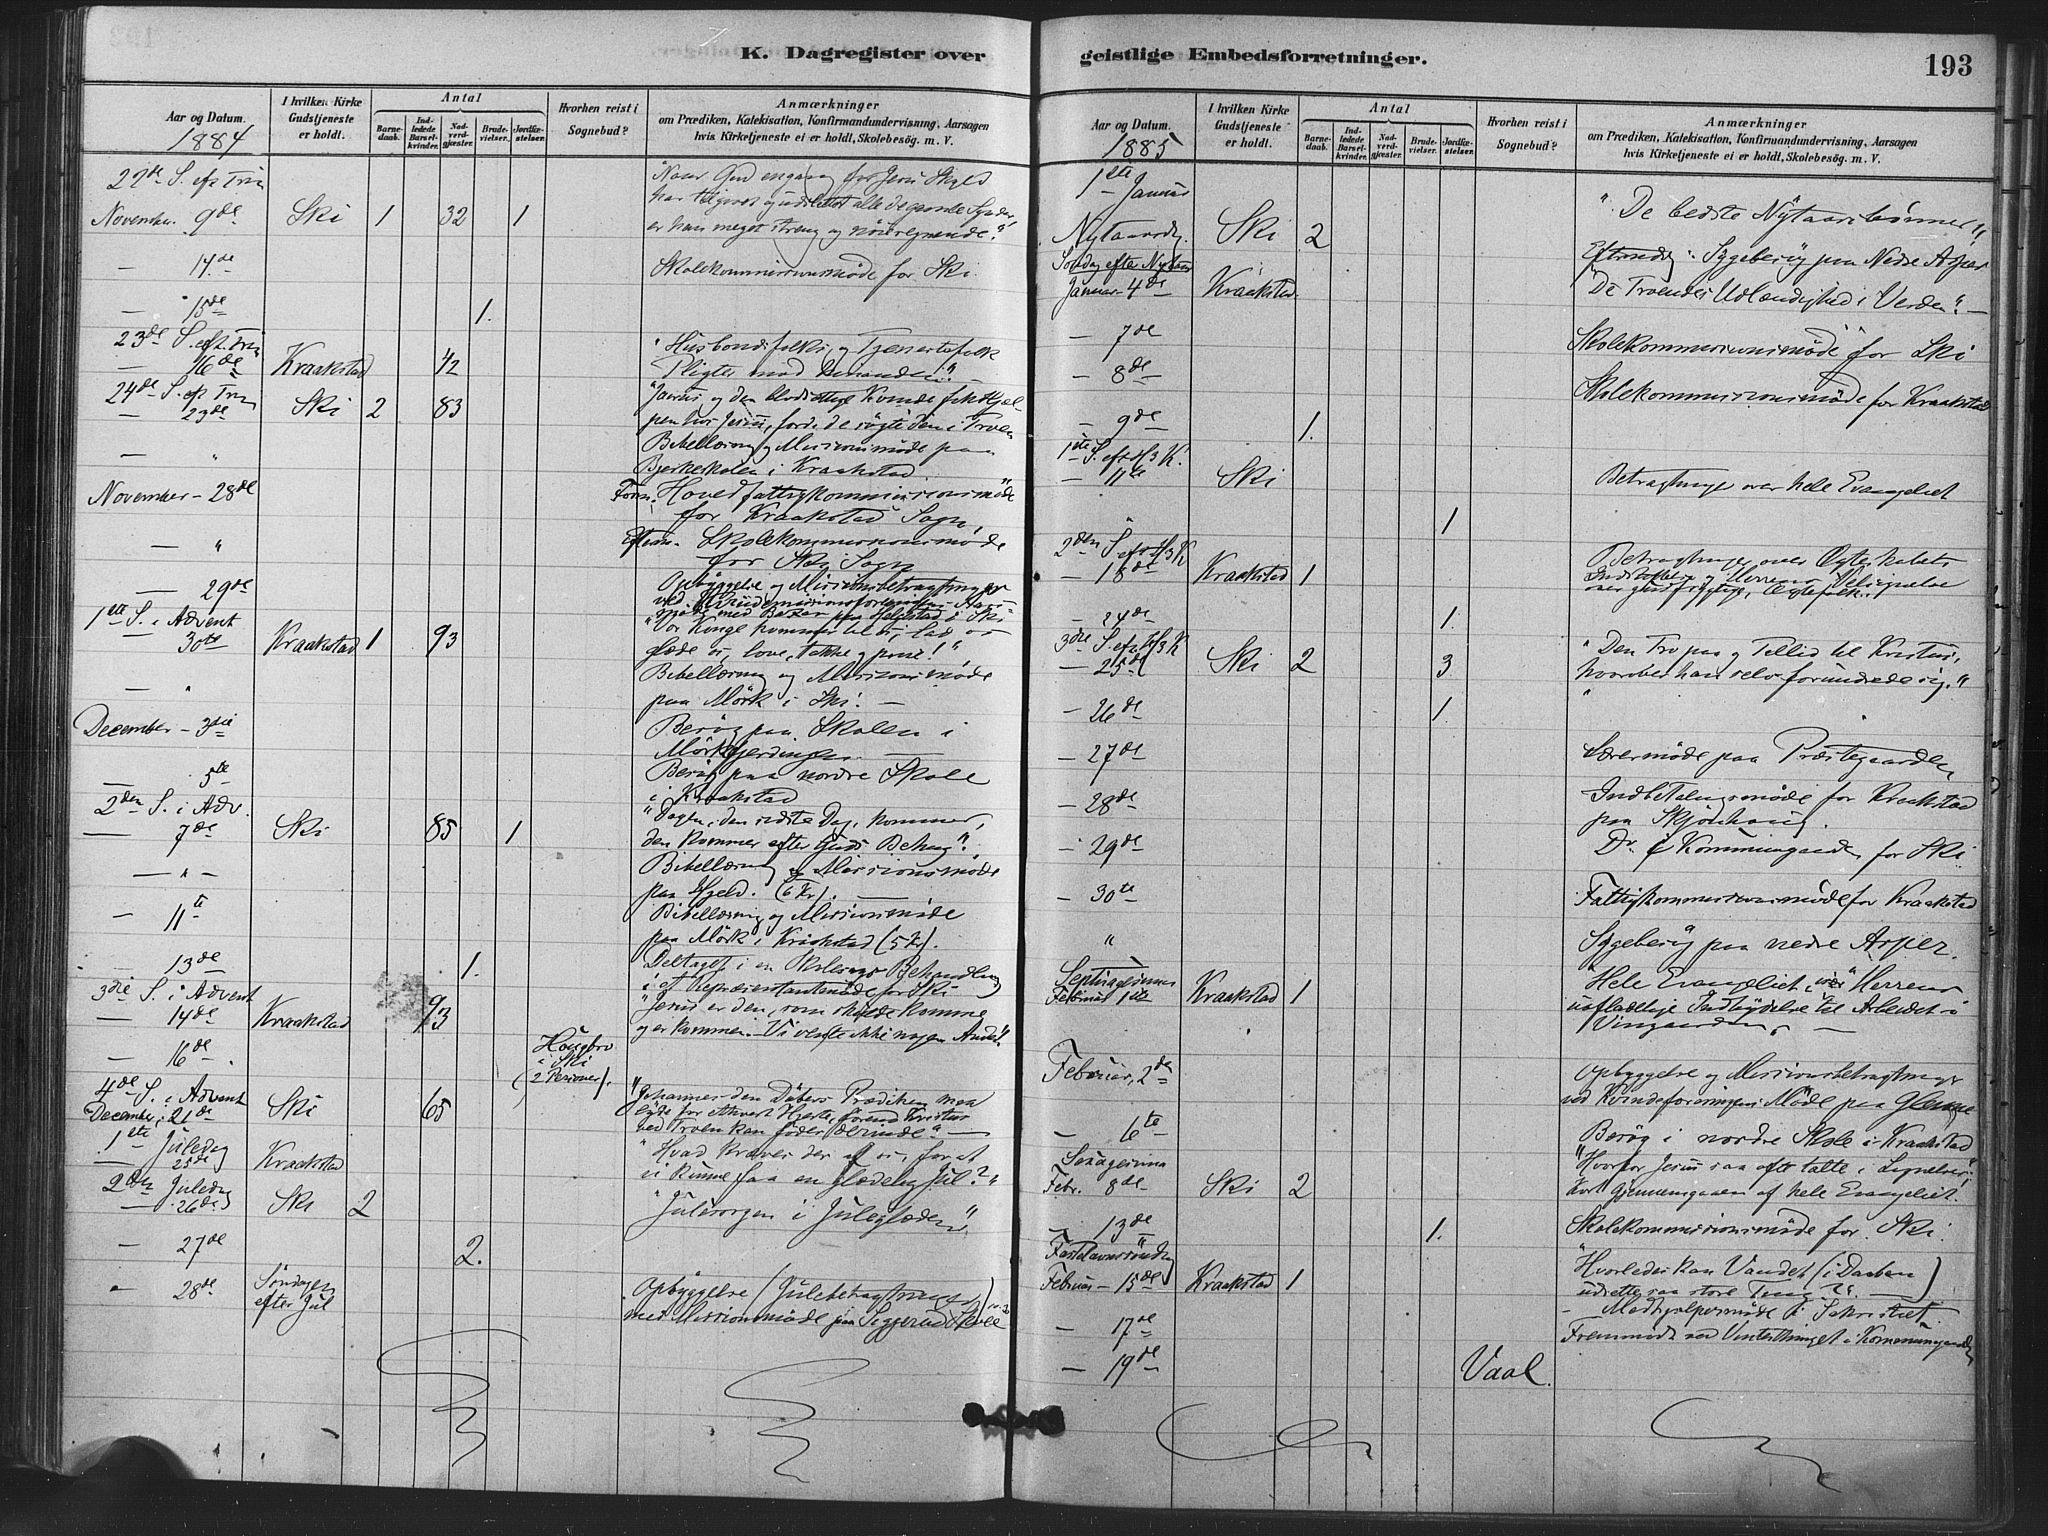 K. Dagregister over
geistlige Embedsforretninger.
193
Aar og Datum.
1884
I hvilken Kirke
Gudstjeneste
er holdt.
Antal
Barne-
daab.
Ind-
ledede
Barsel-
kvinder.
Nad-
verd-
gjæster.
Brude-
vielser.
Jordfæ-
stelser.
Hvorhen reist i
Sognebud?
Anmærkninger
om Prædiken, Katekisation, Konfirmandundervisning, Aarsagen
hvis Kirketjeneste ei er holdt, Skolebesög. m. V.
22de S. eft Trin
November. 9de Ski 1 32 1
"Naar Gud engang for Jesu Skyld
har tilgivet og udslettet alle de gjorde Synder,
er han meget streng og nöieregnende?"
— 14.de
Skolekommissionsmöde for Ski.
— 15de 1.
23de S. eft. Trin
— 16de Kraakstad 42
"Husbondsfolks og Tjenestefolk
Pligter mod hinanden." —
24de S. eft Trin
— 23de Ski 2 83
"Jairus og den blodsottige Kvinde fik Hjæl-
pen hos Jesus, fordi de søgte den i Troen
— "
Bibellæsning og Missionsmöde paa
Bjerkeskolen i Kraakstad
November – 28de
Form. Hovedfattigkommissionsmöde
for Kraakstad Sogn,
— "
Efterm. Skolekommissionsmöde
for Ski Sogn
— 29de
Opbyggelse og Missionsbetragtninger
ved Kvindemissionsforeningens Aars-
möde med Bazar paa Holgestad i Ski
1ste S. i Advent
30te Kraakstad 1 93
"Vor Konge kommer til os; lad os
glæde os, love, takke og prise!"
— "
Bibellæsning og Missionsmöde
paa Mörk i Ski. —
December – 3die
Besøg paa Skolen i
Mörkgjerdingen
— 5te
Besøg paa nordre Skole
i Kraakstad
2den S. i Adv.
— 7de Ski 85 1
"Dagen, den sidste Dag, kommer,
den kommer efter Guds Behag".
— " —
Bibellæsning og Missionsmöde
paa Hjeld. (6 Kr). —
— 11te
Bibellæsning og Missionsmöde
paa Mörk i Kraakstad (5 Kr).
— 13de 1.
Deltaget i en Skolesags Behandling
i et Repræsentantmöde for Ski
3die S. i Advent
— 14de Kraakstad 93
"Jesus er den, som skulde komme
og er kommen. Vi vente ikke nogen Anden".
— 16de
Haugbro
i Ski
(2 Personer).
4de S. i Advent
December, 21de Ski 65
"Johannes den Döbers Prædiken maa
lyde for ethvert Hjerte, förend Kristus
ved Troen kan födes derinde." —
1ste Juledag
— 25de Kraakstad
"Hvad kræves der af os, for at
vi kunne faa en glædelig Jul?"
2den Juledag
— 26de Ski 2
"Julesorgen i Juleglæden",
— 27de 2.
" 28de Søndagen
efter Jul
Opbyggelse (Julebetragtning)
med Missionsmöde paa Seggerud Skole
Aar og Datum.
1885
I hvilken Kirke
Gudstjeneste
er holdt.
Antal
Barne-
daab.
Ind-
ledede
Barsel-
kvinder.
Nad-
verd-
gjæster.
Brude-
vielser.
Jordfæ-
stelser.
Hvorhen reist i
Sognebud?
Anmærkninger
om Prædiken, Katekisation, Konfirmandundervisning, Aarsagen
hvis Kirketjeneste ei er holdt, Skolebesög. m. V.
1ste Januar
Nytaarsdg. Ski 2
"De bedste Nytaarsbønner"
Eftermdg: Sygebesøg paa Nedre Asper
Søndag efter Nytaar
Januar 4de Kraakstad
"De Troendes Udlændighed i Verden". —
— 7de
Skolekommissionsmöde for Ski
— 8de —
Skolekommissionsmöde for Kraakstad
— 9de 1.
1ste S. eft H 3 K.
— 11te Ski
Betragtninger over hele Evangeliet
" 1
2den S. eft H 3 K
— 18de Kraakstad 1
Betragtninger over Ægteskabets
Indstiftelse og Herrens Velsignelse
over gudfrygtige Ægtefolk.
— 24de 1.
3die S. eft H 3 K
— 25de Ski 2 3
"Den Tro paa og Tillid til Kristus,
hvorover han selv forundrede sig."
— 26de 1.
— 27de
Læremøde paa Præstegaarden
— 28de
Indbetalingsmöde for Kraakstad
paa Skjönhaug.
— 29de
Do i Kommunegaarden for Ski
— 30te
Fattigkommissionsmöde for Kraakstad
"
Sygebesøg paa nedre Asper.
Septuagesima
Februar 1ste Kraakstad 1
"Hele Evangeliet over" Herrens
uafladelige Indbydelse til Arbeidet i
Vingaarden. —
Februar, 2de
Opbyggelse og Missionsbetragtninger
ved Kvindeforeningens Möde paa Glenne
— 6te
Besøg i nordre Skole i Kraakstad
Sexagesima
Febr. 8de Ski 2
"Hvorfor Jesus saa ofte talte i Lignelser;"
Kort Gjennemgaaen af hele Evangeliet.
— 13de 1.
Skolekommissionsmöde for Ski.
Fastelavnssöndag
Februar – 15de Kraakstad 1
"Hvorledes kan Vandet (i Daaben)
udrette saa store Ting?" —
— 17de
– Medhjælpermöde i Sakristiet.
Fremmödt ved Vintertinget i Kommunegaarden
— 19de Vaal.